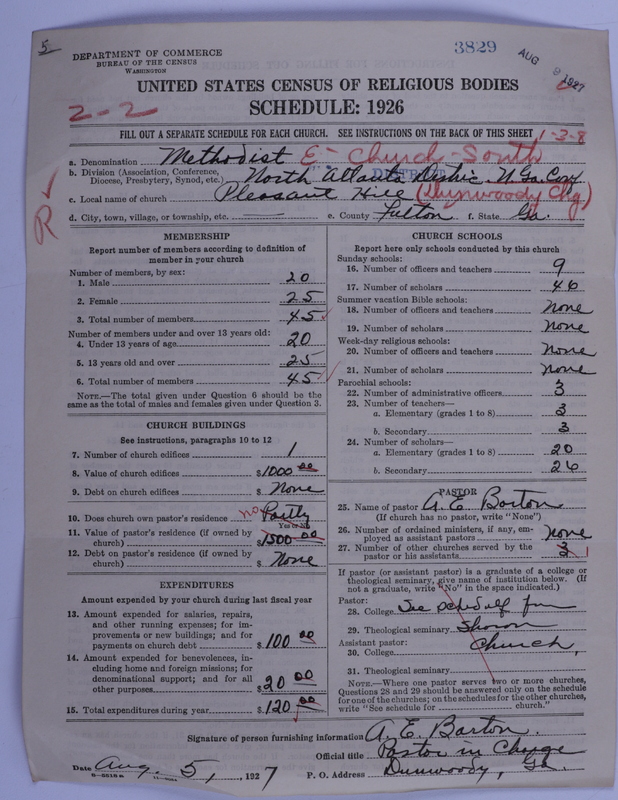 5
3829
AUG 9 1927
DEPARTMENT OF COMMERCE
BUREAU OF THE CENSUS
WASHINGTON
UNITED STATES CENSUS OF RELIGIOUS BODIES
2-2
SCHEDULE: 1926
FILL OUT A SEPARATE SCHEDULE FOR EACH CHURCH. SEE INSTRUCTIONS ON THE BACK OF THIS SHEET
1-3-8
a. Denomination Methodist E- Church-South
b. Division (Association, Conference, Diocese, Presbytery, Synod, etc.) North Atlanta Distric N. Ga. Conf
c. Local name of church Pleasant Hill (Dunwoody Chg)
R
d. City, town, village, or township, etc. e. County Fulton f. State Ga.
MEMBERSHIP
Report number of members according to definition of member in your church
Number of members, by sex:
1. Male 20
2. Female 25
3. Total number of members 45
Number of members under and over 13 years old:
4. Under 13 years of age 20
5. 13 years old and over 25
6. Total number of members 45
NOTE.—The total given under Question 6 should be the same as the total of males and females given under Question 3.
CHURCH BUILDINGS
See instructions, paragraphs 10 to 12
7. Number of church edifices 1
8. Value of church edifices $1000 00
9. Debt on church edifices $ None
10. Does church own pastor's residence no Partly
Yes or No
11. Value of pastor's residence (if owned by church) $1500 00
12. Debt on pastor's residence (if owned by church) $ None
EXPENDITURES
Amount expended by your church during last fiscal year
13. Amount expended for salaries, repairs, and other running expenses; for improvements or new buildings; and for payments on church debt $ 100 00
14. Amount expended for benevolences, including home and foreign missions; for denominational support; and for all other purposes $ 20 00
15. Total expenditures during year $ 120 00
CHURCH SCHOOLS
Report here only schools conducted by this church
Sunday schools:
16. Number of officers and teachers 9
17. Number of scholars 46
Summer vacation Bible schools:
18. Number of officers and teachers None
19. Number of scholars None
Week-day religious schools:
20. Number of officers and teachers None
21. Number of scholars None
Parochial schools:
22. Number of administrative officers 3
23. Number of teachers—
a. Elementary (grades 1 to 8) 3
b. Secondary 3
24. Number of scholars—
a. Elementary (grades 1 to 8) 20
b. Secondary 26
PASTOR
25. Name of pastor A. E. Barton
(If church has no pastor, write "None")
26. Number of ordained ministers, if any, employed as assistant pastors None
27. Number of other churches served by the pastor or his assistants 3 1
If pastor (or assistant pastor) is a graduate of a college or theological seminary, give name of institution below. (If not a graduate, write "No" in the space indicated.)
Pastor:
28. College See schedule for
29. Theological seminary Sharon
Assistant pastor:
30. College Church,
31. Theological seminary
NOTE.—Where one pastor serves two or more churches, Questions 28 and 29 should be answered only on the schedule for one of the churches; on the schedules for the other churches, write "See schedule for church."
Signature of person furnishing information A. E. Barton.
Official title Pastor in Charge
Date Aug. 5, , 1927 P. O. Address Dunwoody, Ga.